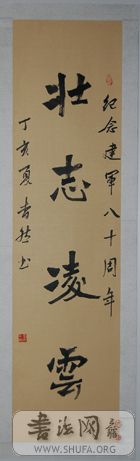 纪念建军八十周年
壮志凌雲
丁亥夏
书法网
WWW.SHUFA.ORG